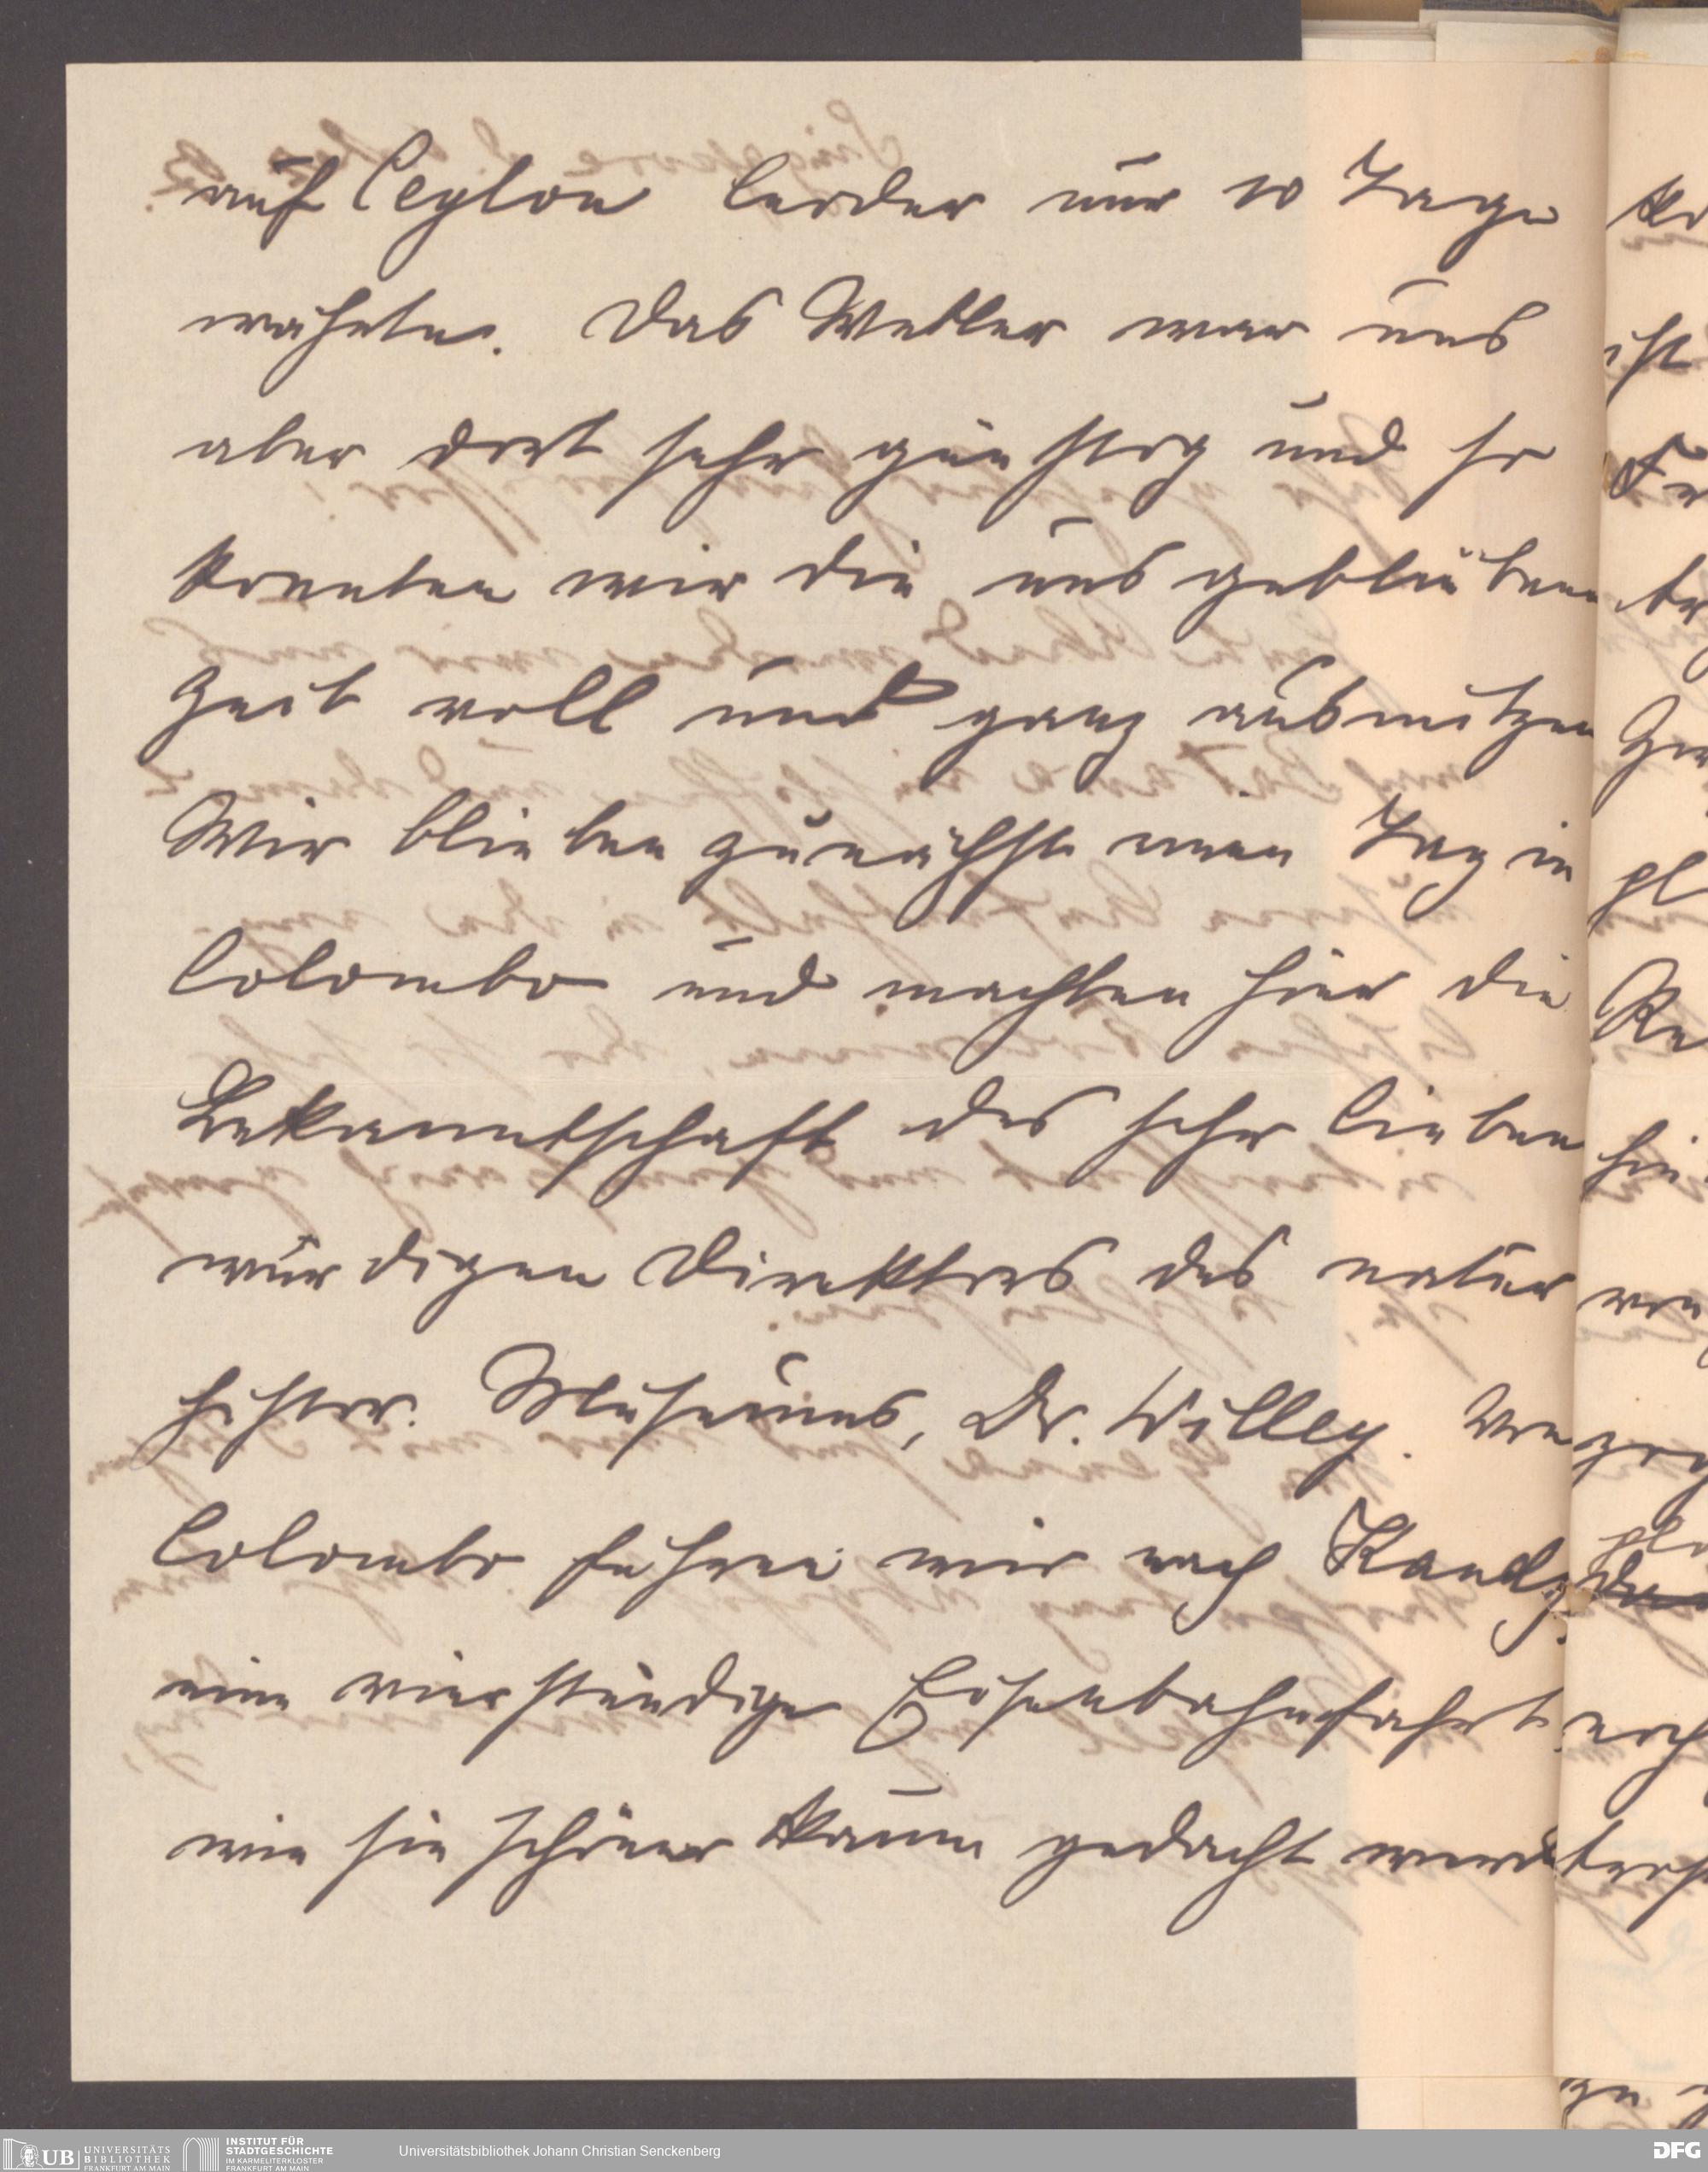 auf Ceylon leider nur 10 Tage
währte. Das Wetter war uns
aber dort sehr günstig und so
konnten wir die uns gebliebene
Zeit voll und ganz ausnützen
Wir blieben zunächst einen Tag in
Colombo und machten hier die
Bekanntschaft des sehr lieben
würdigen Direktors des natur
histor. Museums, Dr. Willey. Von
Colombo fuhren wir nach Kandy,
eine vierstündige Eisenbahnfahrt,
wie sie schöner kaum gedacht werden
UB UNIVERSITÄTS
BIBLIOTHEK
FRANKFURT AM MAIN
INSTITUT FÜR
STADTGESCHICHTE
IM KARMELITERKLOSTER
FRANKFURT AM MAIN
Universitätsbibliothek Johann Christian Senckenberg
DFG